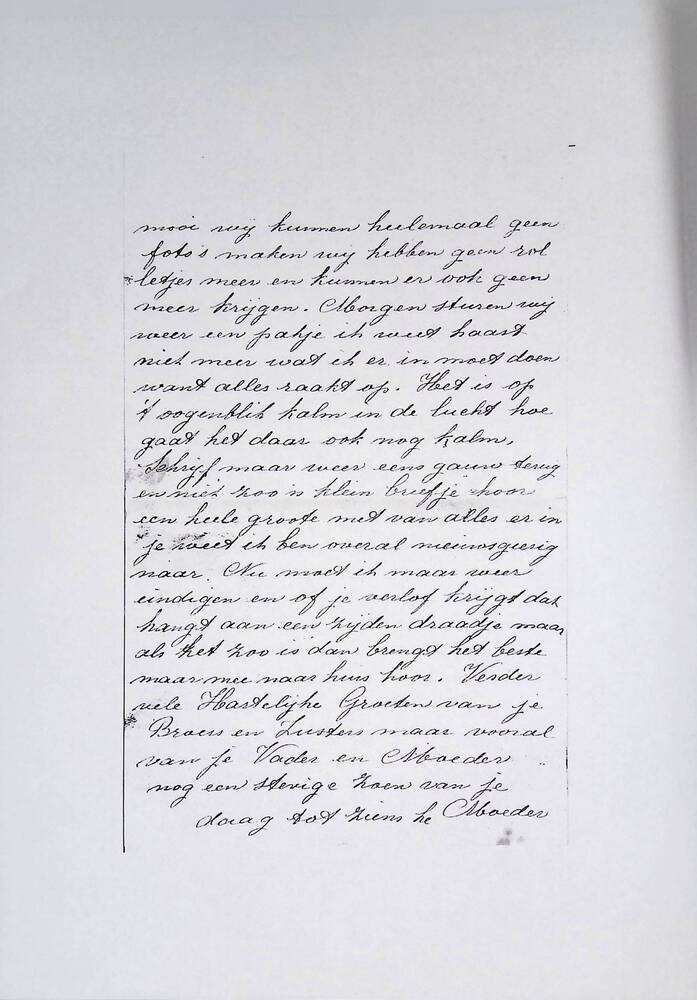 mooi wij kunnen heelemaal geen
foto's maken wij hebben geen rol
letjes meer en kunnen er ook geen
meer krijgen. Morgen sturen wij
weer een pakje ik weet haast
niet meer wat ik er in moet doen
want alles raakt op. Het is op
't oogenblik kalm in de lucht hoe
gaat het daar ook nog kalm,
Schrijf maar weer eens gauw terug
en niet zoo'n klein briefje hoor
een heele groote met van alles er in
je weet ik ben overal nieuwsgierig
naar. Nu moet ik maar weer
eindigen en of je verlof krijgt dat
hangt aan een zijden draadje maar
als het zoo is dan brengt het beste
maar mee naar huis hoor. Verder
vele Hartelijke Groeten van je
Broers en Zusters maar vooral
van je Vader en Moeder
nog een stevige zoen van je
daag tot ziens he Moeder